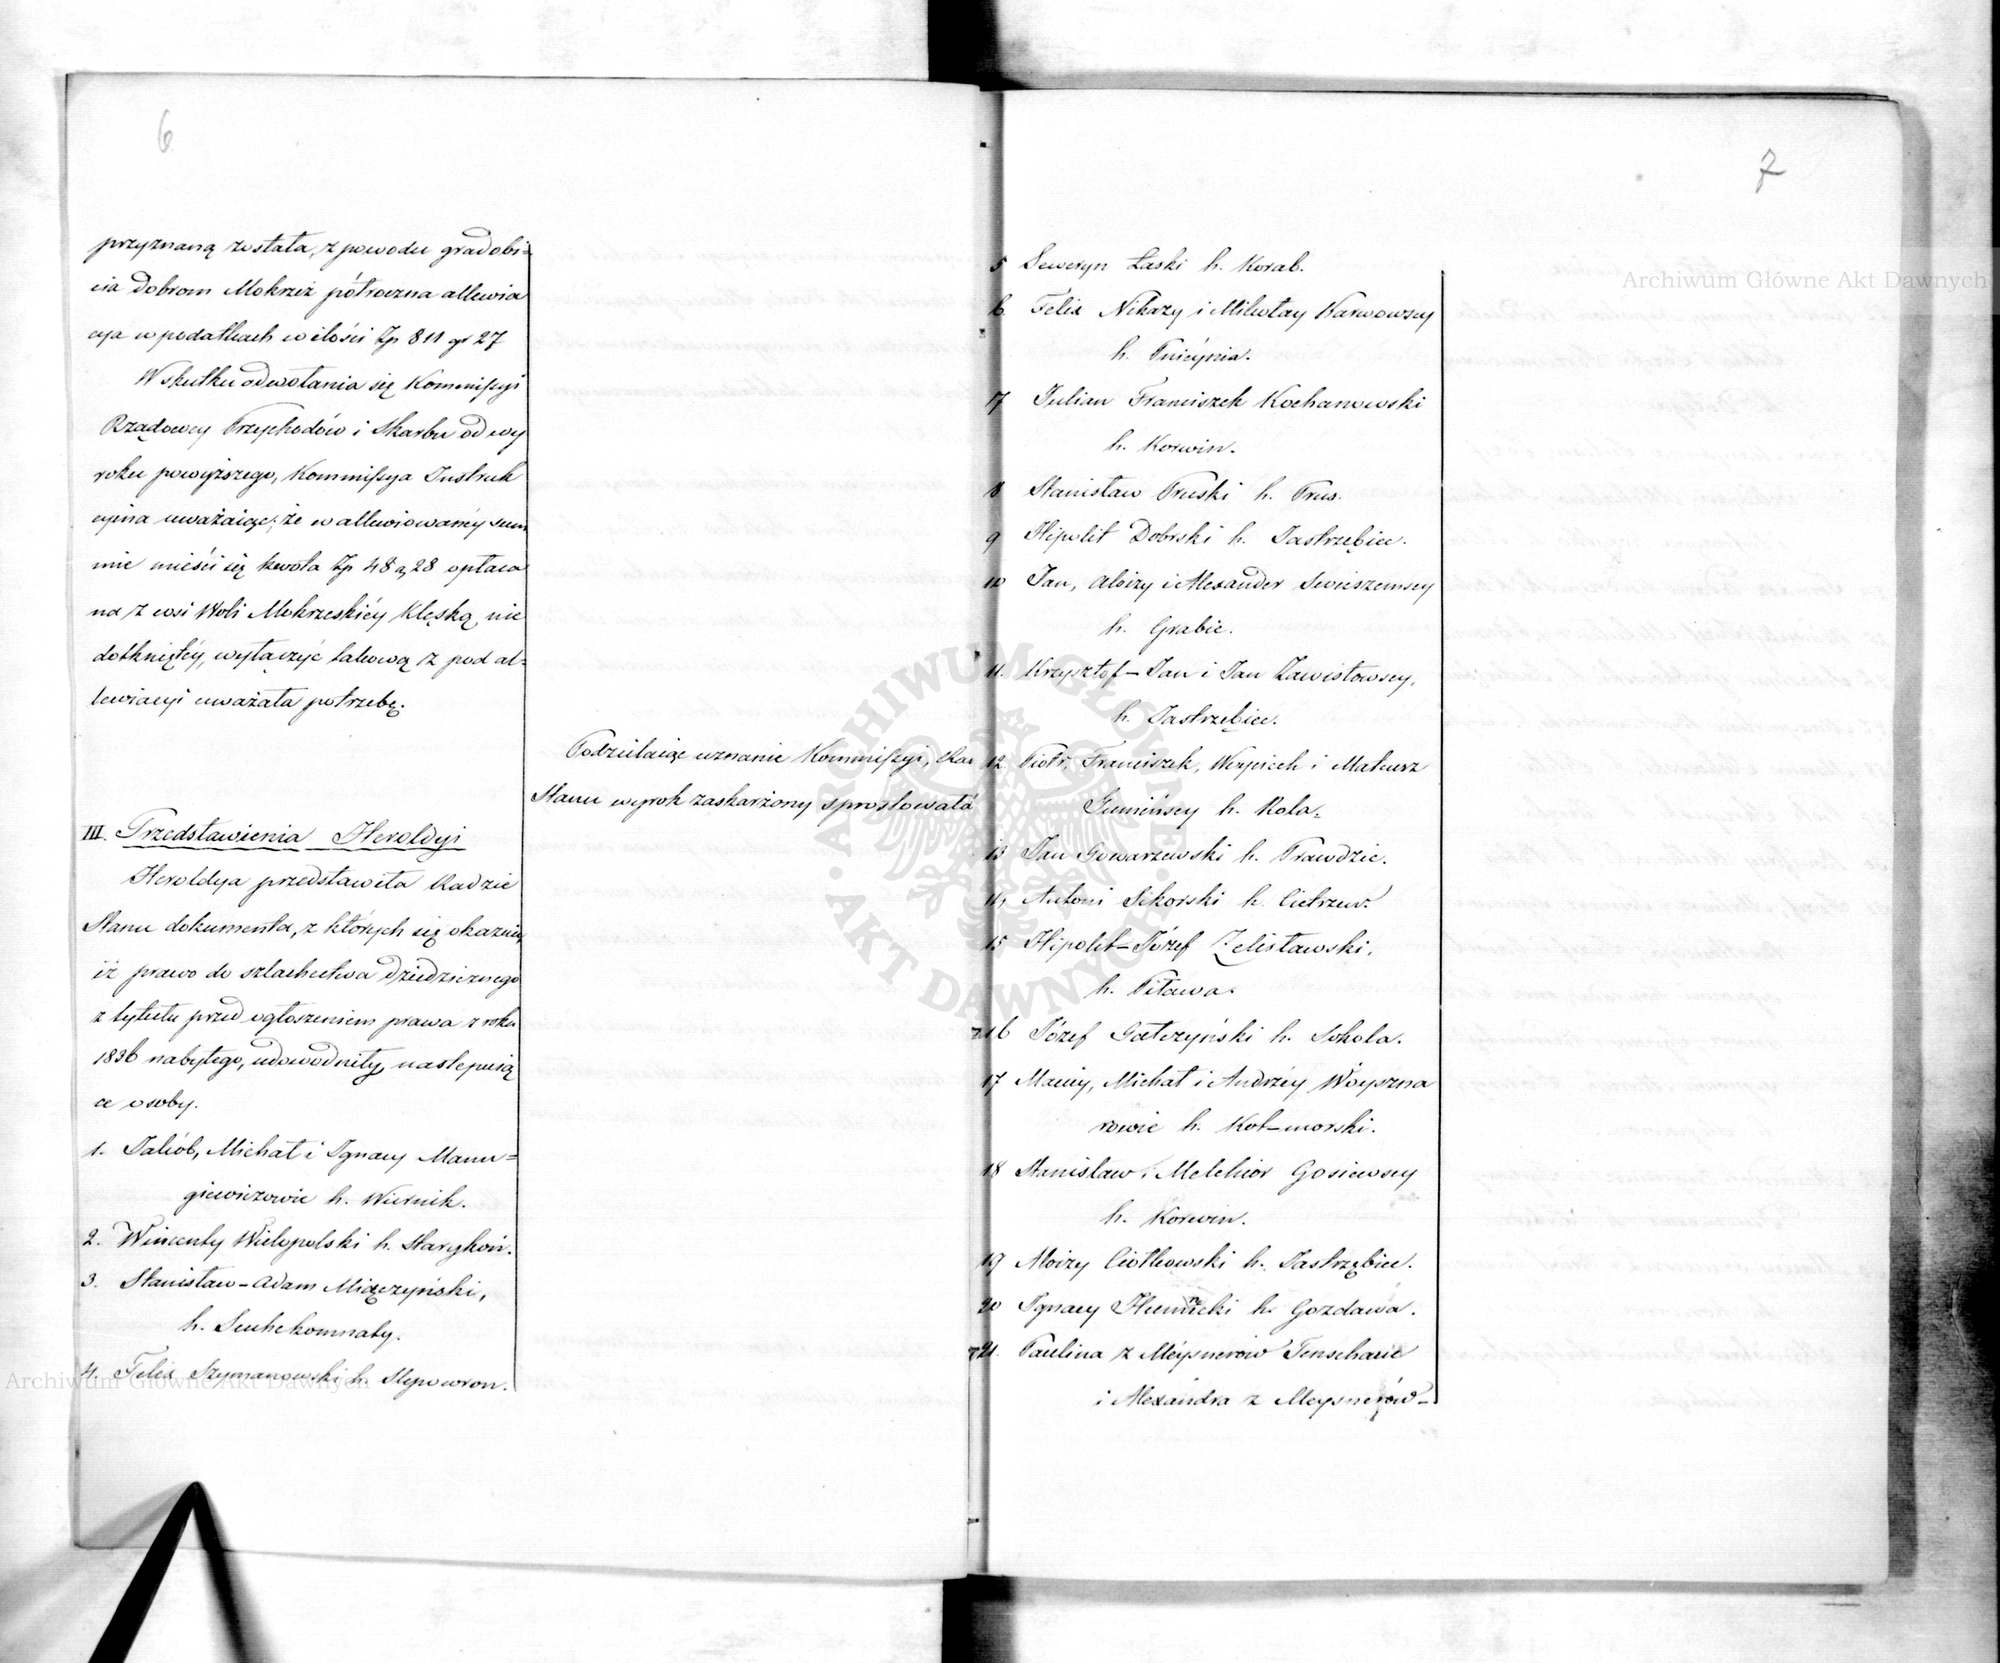 6
przyznaną została, z powodu gradobi-
cia dobrom Mokrzeż półroczna allewia
cya w podatkach w ilości Zp 811 gr 27
W skutku odwołania się Kommissyi
Rządowey Przychodów i Skarbu od wy
roku powyższego, Kommissya Instruk
cyina uważaiąc, że w allewiowanéy sum
mie mieści się kwota Zp 48 g 28 opłaca
na z wsi Woli Mokrzeskiéy klęską nie
dotkniętéy, wyłączyć takową z pod al-
lewiacyi uważała potrzebę.
Podzielaiąc uznanie Kommissyi, Rada
Stanu wyrok zaskarżony sprostowała
III. Przedstawienia Heroldyi
Heroldya przedstawiła Radzie
Stanu dokumenta, z których się okazuie,
iż prawo do szlachectwa dziedzicznego
z tytułu przed ogłoszeniem prawa z roku
1836 nabytego, udowodniły następuią
ce osoby.
1. Jakób, Michał i Ignacy Manu-
giewiczowie h. Wiernik.
2. Wincenty Wielopolski h. Starykoń.
3. Stanisław-Adam Miączyński,
h. Suchekomnaty.
4. Felix Szymanowski h. Slepowron.
7
5 Seweryn Łaski h. Korab.
6. Felix Nikazy i Mikołay Karwowscy
h. Pnieynia.
7 Julian Franciszek Kochanowski
h. Korwin.
8 Stanisław Pruski h. Prus.
9 Hipolit Dobrski h. Jastrzębiec.
10 Jan, Aloizy i Alexander Swieszewscy
h. Grabie.
11. Krzysztof-Jan i Jan Zawistowscy,
h. Jastrzębiec.
12 Piotr, Franciszek, Woyciech i Mateusz
Gumińscy h. Rola.
13 Jan Gowarzewski h. Prawdzic.
14 Antoni Sikorski h. Cietrzew.
15 Hipolit-Józef Zelisławski,
h. Pilawa.
16 Józef Gałczyński h. Sokola.
17 Maciey, Michał i Andrzéy Woyszna
rowie h. Kot-morski.
18 Stanisław i Melchior Gosiewscy
h. Korwin.
19 Aloizy Ciołkowski h. Jastrzębiec.
20 Ignacy Humnicki h. Gozdawa.
21. Paulina z Méysnerów Fenscharie
i Alexandra z Meysnerów-
Archiwum Główne Akt Dawnych
Archiwum Główne Akt Dawnych
ARCHIWUM GŁÓWNE • AKT DAWNYCH •